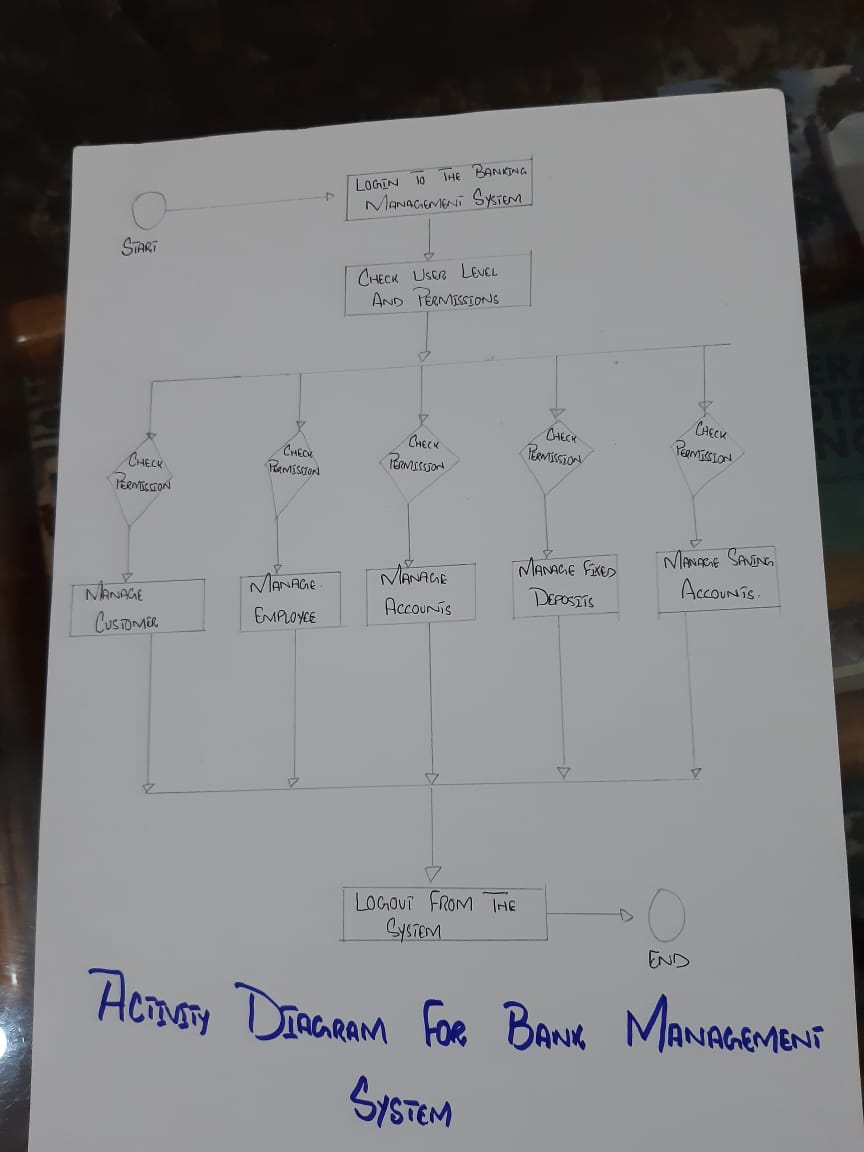 LOGIN TO THE BANKING
MANAGEMENT SYSTEM
START
CHECK USER LEVEL
AND PERMISSIONS
CHECK
PERMISSION
CHECK
PERMISSION
CHECK
PERMISSION
CHECK
PERMISSION
CHECK
PERMISSION
MANAGE
CUSTOMER
MANAGE
EMPLOYEE
MANAGE
ACCOUNTS
MANAGE FIXED
DEPOSITS
MANAGE SAVING
ACCOUNTS.
LOGOUT FROM THE
SYSTEM
END
ACTIVITY DIAGRAM FOR BANK MANAGEMENT
SYSTEM